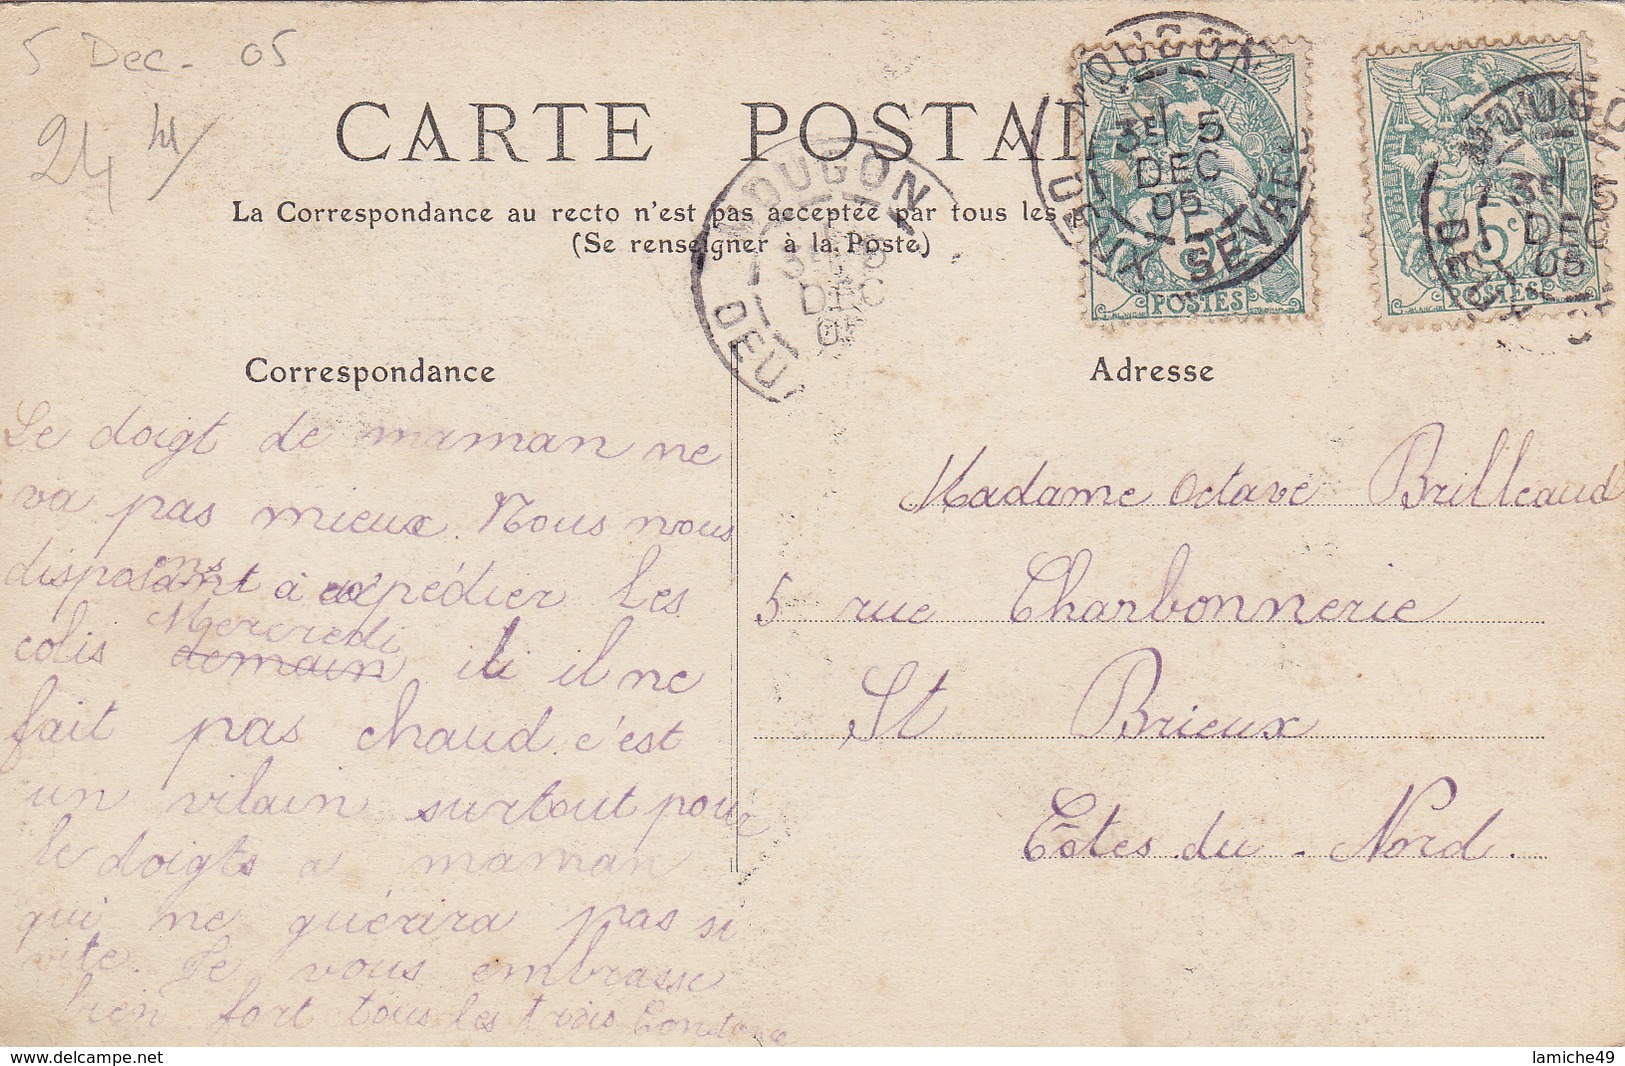 5 Dec. 05
24
CARTE POSTAL
La Correspondance au recto n'est pas acceptée par tous les
(Se renseigner à la Poste)
MOUGON
3E 5
DEC
05
DEUX SEVRES
POSTES
5c
POSTES
Correspondance
Adresse
Le doigt de maman ne
va pas mieux. Nous nous
disposons à expédier les
colis demain Mercredi ici il ne
fait pas chaud. c'est
un vilain surtout pour
le doigts a maman
qui ne guérira pas si
vite. Je vous embrasse
bien fort tous les trois Constance
Madame Octave Brilleaud
5 rue Charbonnerie
St Brieux
Côtes du-Nord.
lamiche49